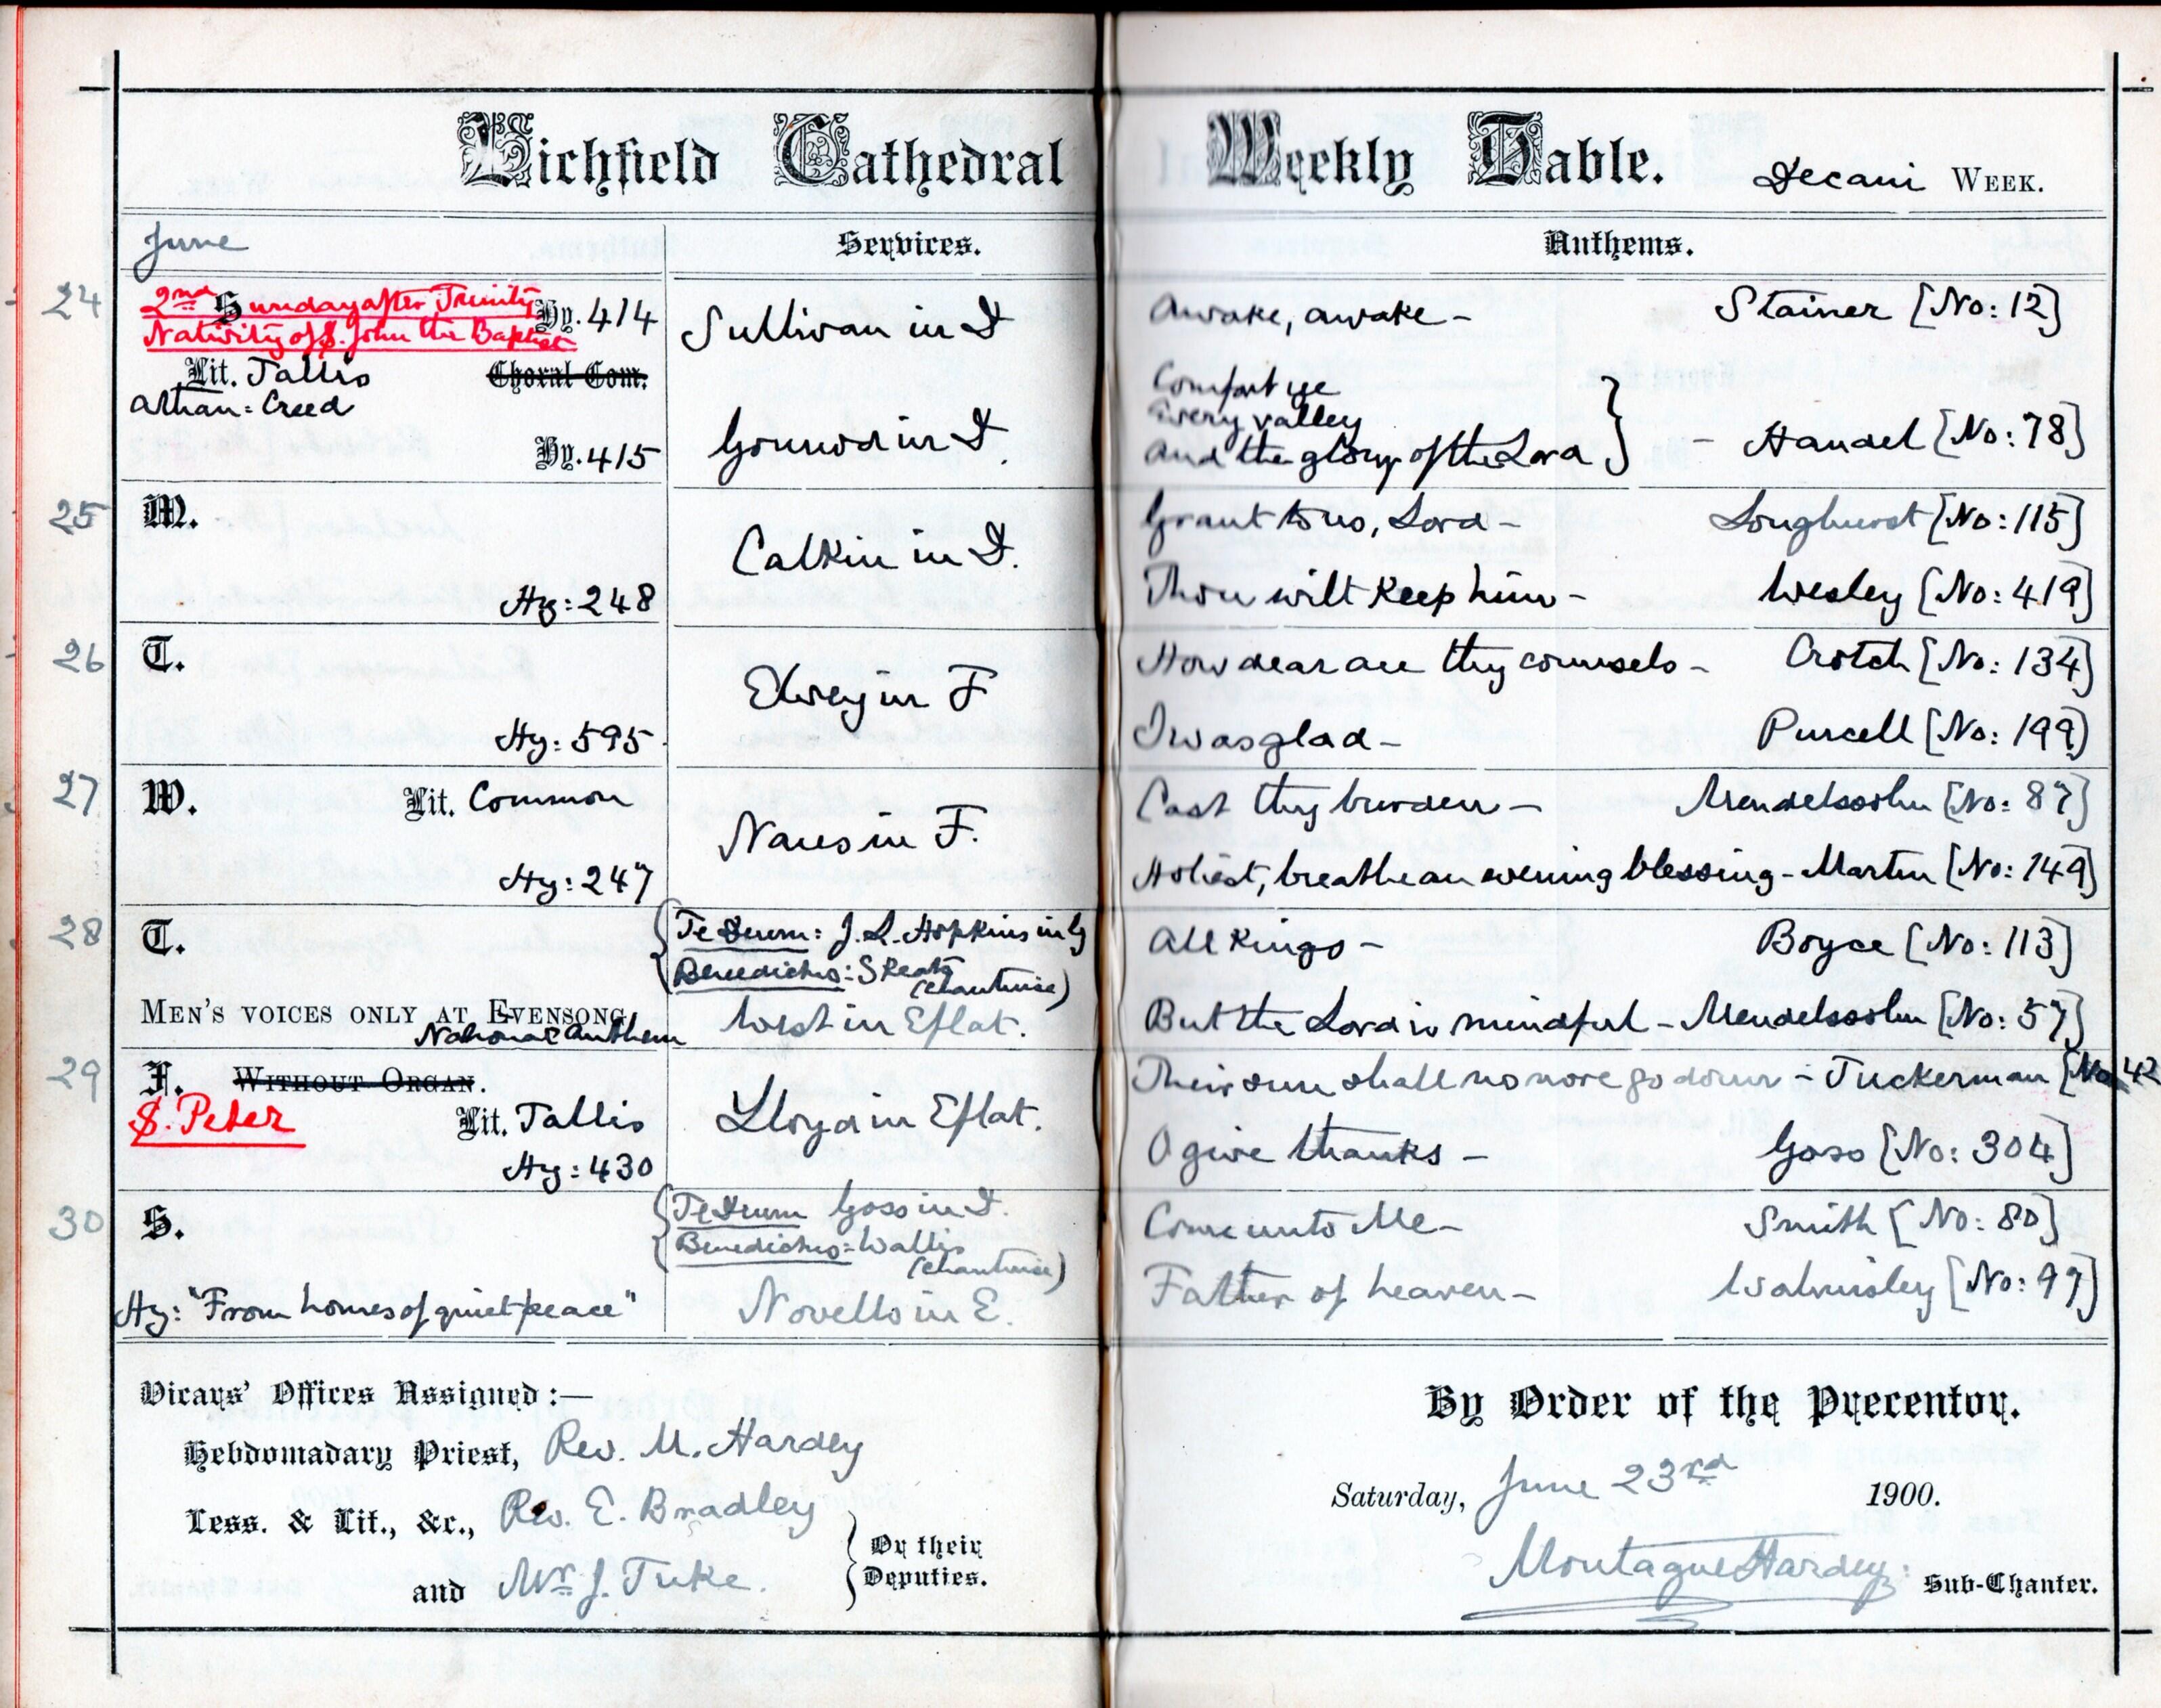 Lichfield Cathedral Weekly Table. Decani WEEK.
June Services. Anthems.
24 2nd Sunday after Trinity Hy. 414 Sullivan in D Awake, awake - Stainer [No: 12]
Nativity of S. John the Baptist
Lit. Tallis Choral Com. Comfort ye
Athan: Creed Every valley
Hy. 415 Gounod in D. And the glory of the Lord } - Handel [No: 78]
25 M. Grant to us, Lord - Longhurst [No: 115]
Calkin in D.
Hy: 248 Thou wilt keep him - Wesley [No: 419]
26 T. How dear are thy counsels - Crotch [No: 134]
Elvey in F
Hy: 595. I was glad - Purcell [No: 199]
27 W. Lit. Common Cast thy burden - Mendelssohn [No: 87]
Nares in F.
Hy: 247 Holiest, breathe an evening blessing - Martin [No: 149]
28 T. { Te Deum: J. L. Hopkins in G All Kings - Boyce [No: 113]
Benedictus: Skeats
(Chantwise)
MEN'S VOICES ONLY AT EVENSONG. West in E flat. But the Lord is mindful - Mendelssohn [No: 57]
National Anthem
29 F. WITHOUT ORGAN. Their sun shall no more go down - Tuckerman [No 42
S. Peter Lit. Tallis Lloyd in E flat.
Hy: 430 O give thanks - Goss [No: 304]
30 S. { Te Deum Goss in D. Come unto Me - Smith [No: 80]
Benedictus: Wallis
(Chantwise)
Hy: "From homes of quiet peace" Novello in E. Father of heaven - Walmisley [No: 99]
Vicars' Offices Assigned:—
By Order of the Precentor.
Hebdomadary Priest, Rev. M. Hardey
Saturday, June 23rd 1900.
Less. & Lit., &c., Rev. E. Bradley
and Mr. J. Tuke. } Or their
Deputies.
Montague Hardey: Sub-Chanter.